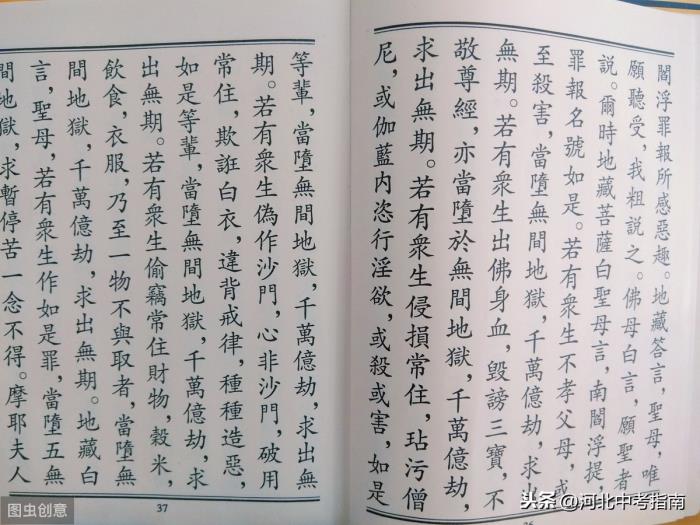 閻浮罪報所感惡趣。地藏答言，聖母，唯
願聽受，我粗說之。佛母白言，願聖者
說。爾時地藏菩薩白聖母言，南閻浮提，
罪報名號如是。若有衆生不孝父母，或
至殺害，當墮無間地獄，千萬億劫，求出
無期。若有衆生出佛身血，毀謗三寶，不
敬尊經，亦當墮於無間地獄，千萬億劫，
求出無期。若有衆生侵損常住，玷污僧
尼，或伽藍内恣行淫欲，或殺或害，如是
等輩，當墮無間地獄，千萬億劫，求出無
期。若有衆生偽作沙門，心非沙門，破用
常住，欺誑白衣，違背戒律，種種造惡，
如是等輩，當墮無間地獄，千萬億劫，求
出無期。若有衆生偷竊常住財物，穀米，
飲食，衣服，乃至一物不與取者，當墮無
間地獄，千萬億劫，求出無期。地藏白
言，聖母，若有衆生作如是罪，當墮五無
間地獄，求暫停苦一念不得。摩耶夫人
37
图虫创意
头条@河北中考指南